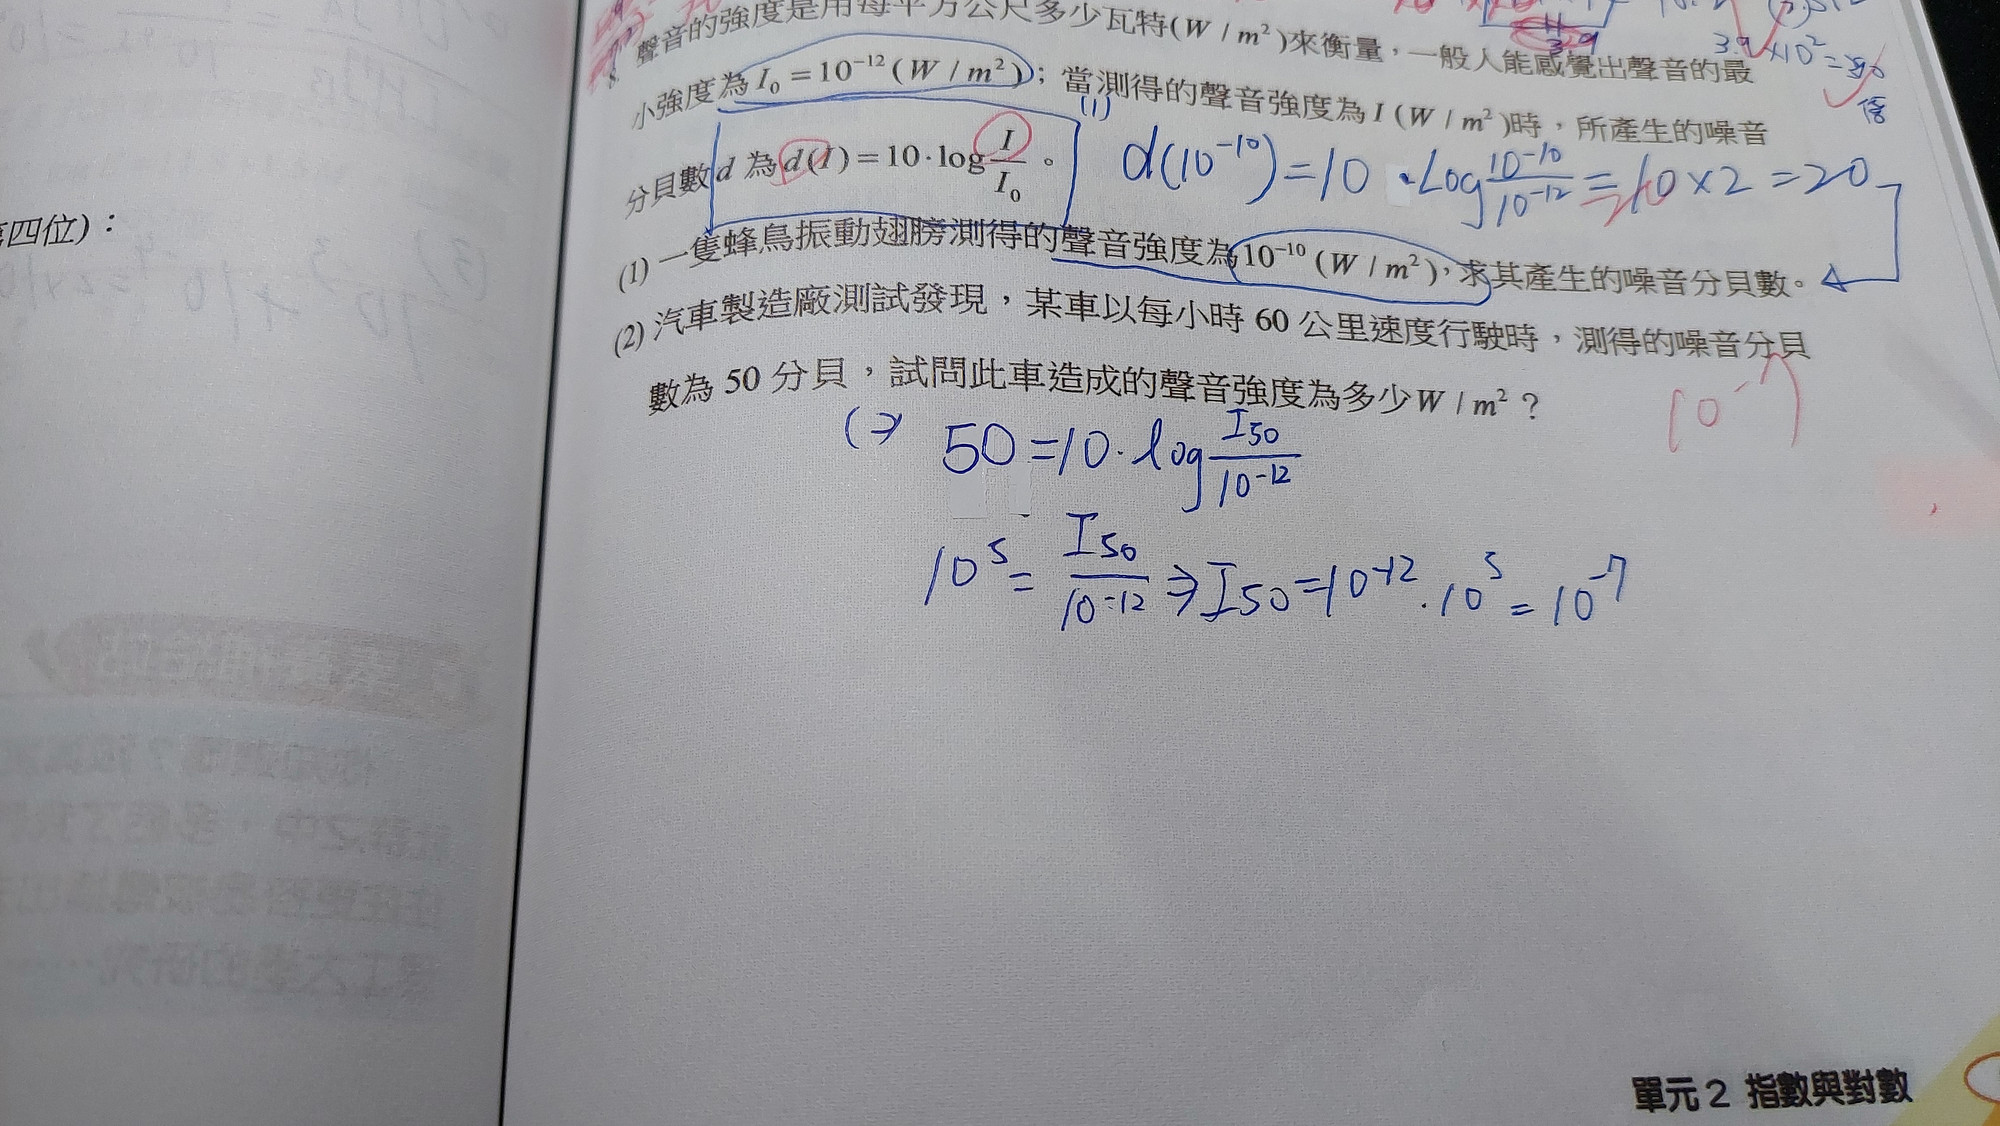 聲音的強度是用每平方公尺多少瓦特(W / m²)來衡量，一般人能感覺出聲音的最
小強度為 I₀ = 10⁻¹² (W / m²)；當測得的聲音強度為 I (W / m²)時，所產生的噪音
分貝數 d 為 d(I) = 10·log I/I₀。
(1) d(10⁻¹⁰) = 10 · log 10⁻¹⁰/10⁻¹² = 10 × 2 = 20
3.9 × 10² = 390
倍
(1) 一隻蜂鳥振動翅膀測得的聲音強度為10⁻¹⁰ (W / m²)，求其產生的噪音分貝數。
(2) 汽車製造廠測試發現，某車以每小時 60 公里速度行駛時，測得的噪音分貝
數為 50 分貝，試問此車造成的聲音強度為多少W / m²？
10⁻⁷
50 = 10 · log I₅₀/10⁻¹²
10⁵ = I₅₀/10⁻¹² ⇒ I₅₀ = 10⁻¹² · 10⁵ = 10⁻⁷
四位)：
單元 2 指數與對數